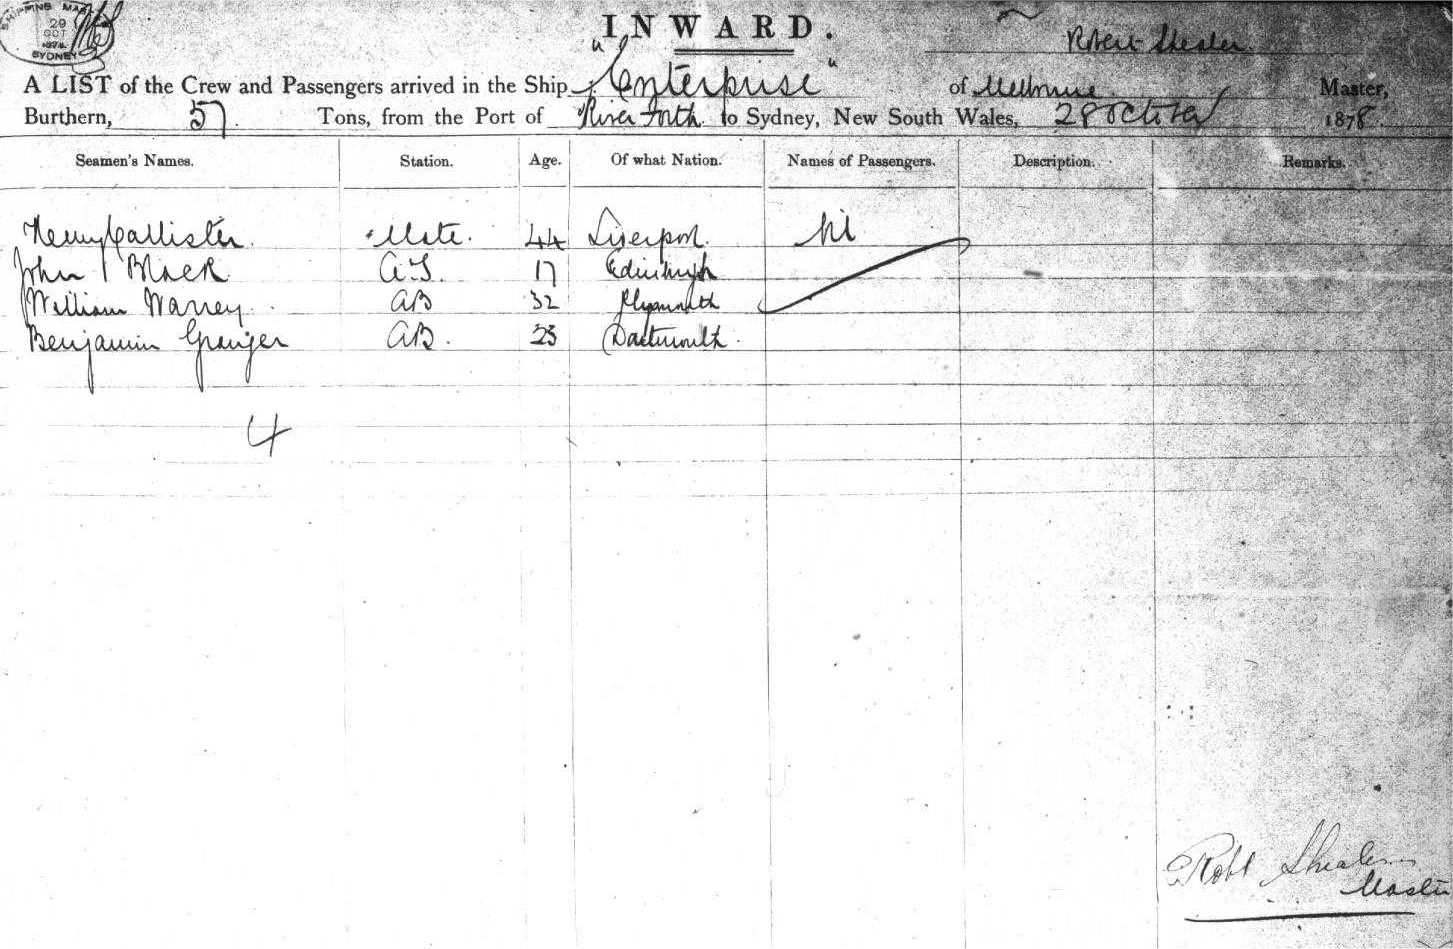 SHIPPING MAS
29
OCT
1878
SYDNEY
INWARD.
Robert
A LIST of the Crew and Passengers arrived in the Ship "Enterprise" of Melbourne Master,
Burthern, 57 Tons, from the Port of River Forth to Sydney, New South Wales, 28 October 1878
Seamen's Names. Station. Age. Of what Nation. Names of Passengers. Description. Remarks.
Henry Callister. Mate. 44 Liverpool. Nil
John Black AS. 17 Edinburgh
William Warrey. AB 32 Plymouth
Benjamin Granger AB. 23 Dartmouth.
4
Robt
Master